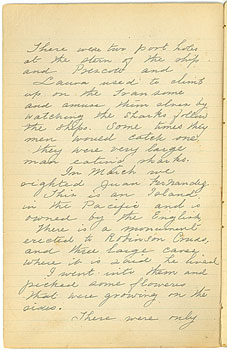 There were two port holes
at the stern of the ship
and Prescott and
Laura used to climb
up on the Transome
and amuse themselves by
watching the sharks follow
the ships. Some times they
men would catch one.
They were very large
man eating sharks.
In March we
sighted Juan Fernandez
This is an Island
in the Pacific and is
owned by the English
There is a monument
erected to Robinson Crusoe,
and three large caves
where it is said he lived
I went with them and
picked some flowers
that were growing on the
sides.
There were only